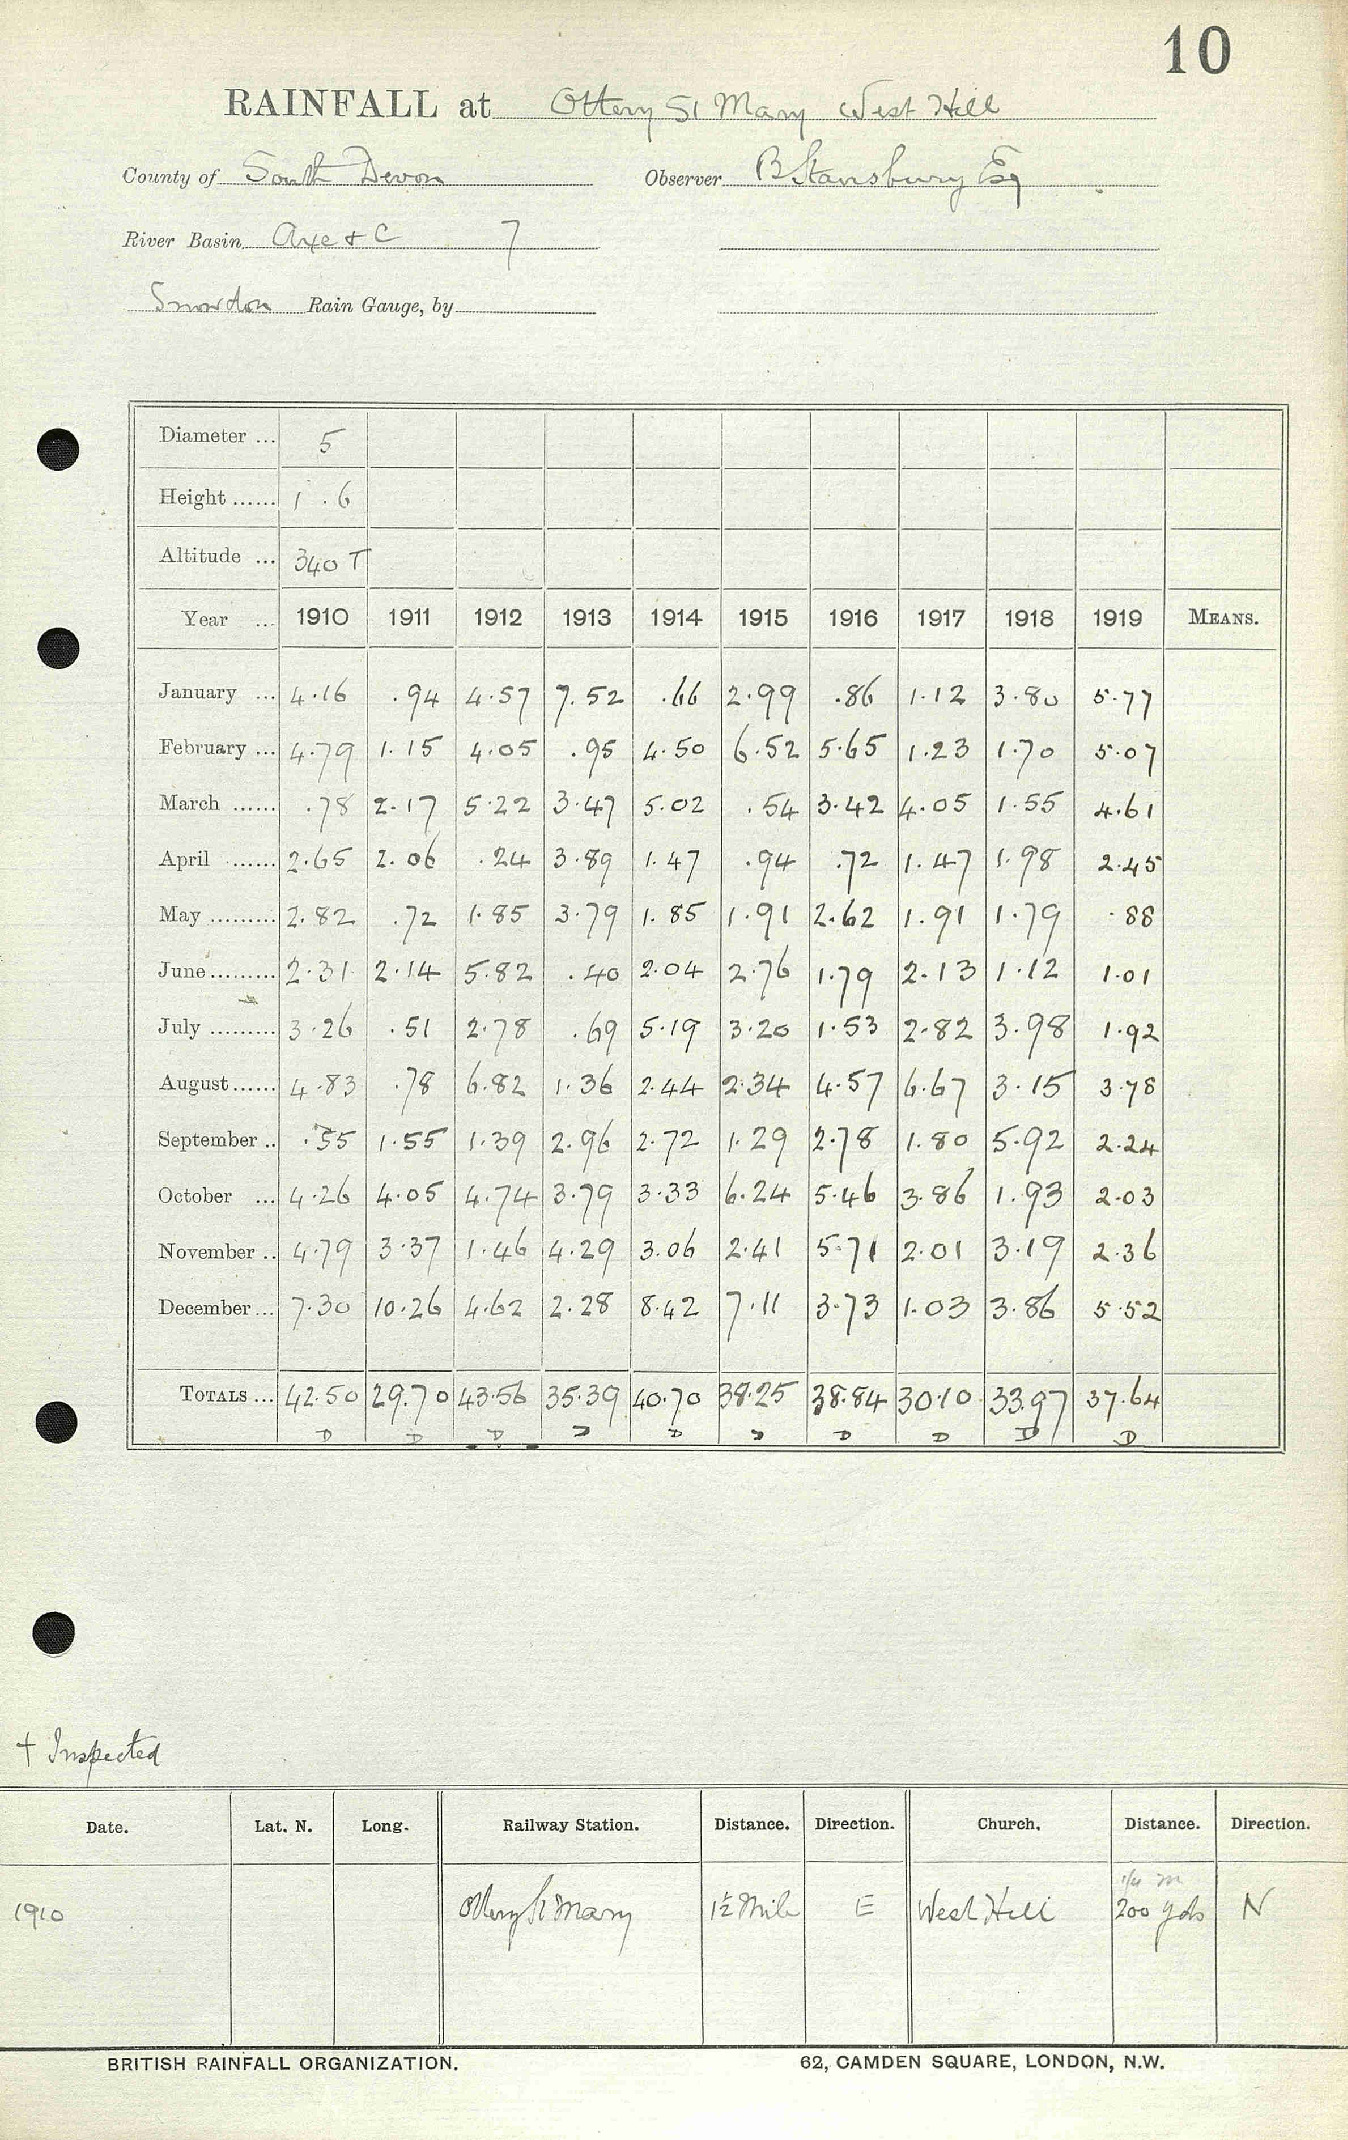 10
RAINFALL at Ottery St Mary West Hill
County of South Devon Observer B Stansbury Esq
River Basin Axe & C 7
Snowdon Rain Gauge, by
Diameter ... 5
Height ...... 1 . 6
Altitude ... 340 T
Year ... 1910 1911 1912 1913 1914 1915 1916 1917 1918 1919 MEANS.
January ... 4.16 .94 4.57 7.52 .66 2.99 .86 1.12 3.80 5.77
February ... 4.79 1.15 4.05 .95 4.50 6.52 5.65 1.23 1.70 5.07
March ...... .78 2.17 5.22 3.47 5.02 .54 3.42 4.05 1.55 4.61
April ...... 2.65 2.06 .24 3.89 1.47 .94 .72 1.47 1.98 2.45
May ......... 2.82 .72 1.85 3.79 1.85 1.91 2.62 1.91 1.79 .88
June ......... 2.31 2.14 5.82 .40 2.04 2.76 1.79 2.13 1.12 1.01
July ......... 3.26 .51 2.78 .69 5.19 3.20 1.53 2.82 3.98 1.92
August ...... 4.83 .78 6.82 1.36 2.44 2.34 4.57 6.67 3.15 3.78
September .. .55 1.55 1.39 2.96 2.72 1.29 2.78 1.80 5.92 2.24
October ... 4.26 4.05 4.74 3.79 3.33 6.24 5.46 3.86 1.93 2.03
November .. 4.79 3.37 1.46 4.29 3.06 2.41 5.71 2.01 3.19 2.36
December ... 7.30 10.26 4.62 2.28 8.42 7.11 3.73 1.03 3.86 5.52
TOTALS ... 42.50 29.70 43.56 35.39 40.70 38.25 38.84 30.10 33.97 37.64
D D D D D D D D D D
† Inspected
Date. Lat. N. Long. Railway Station. Distance. Direction. Church. Distance. Direction.
1/4 m
1910 Ottery St Mary 1½ Mile E West Hill 200 yds N
BRITISH RAINFALL ORGANIZATION. 62, CAMDEN SQUARE, LONDON, N.W.